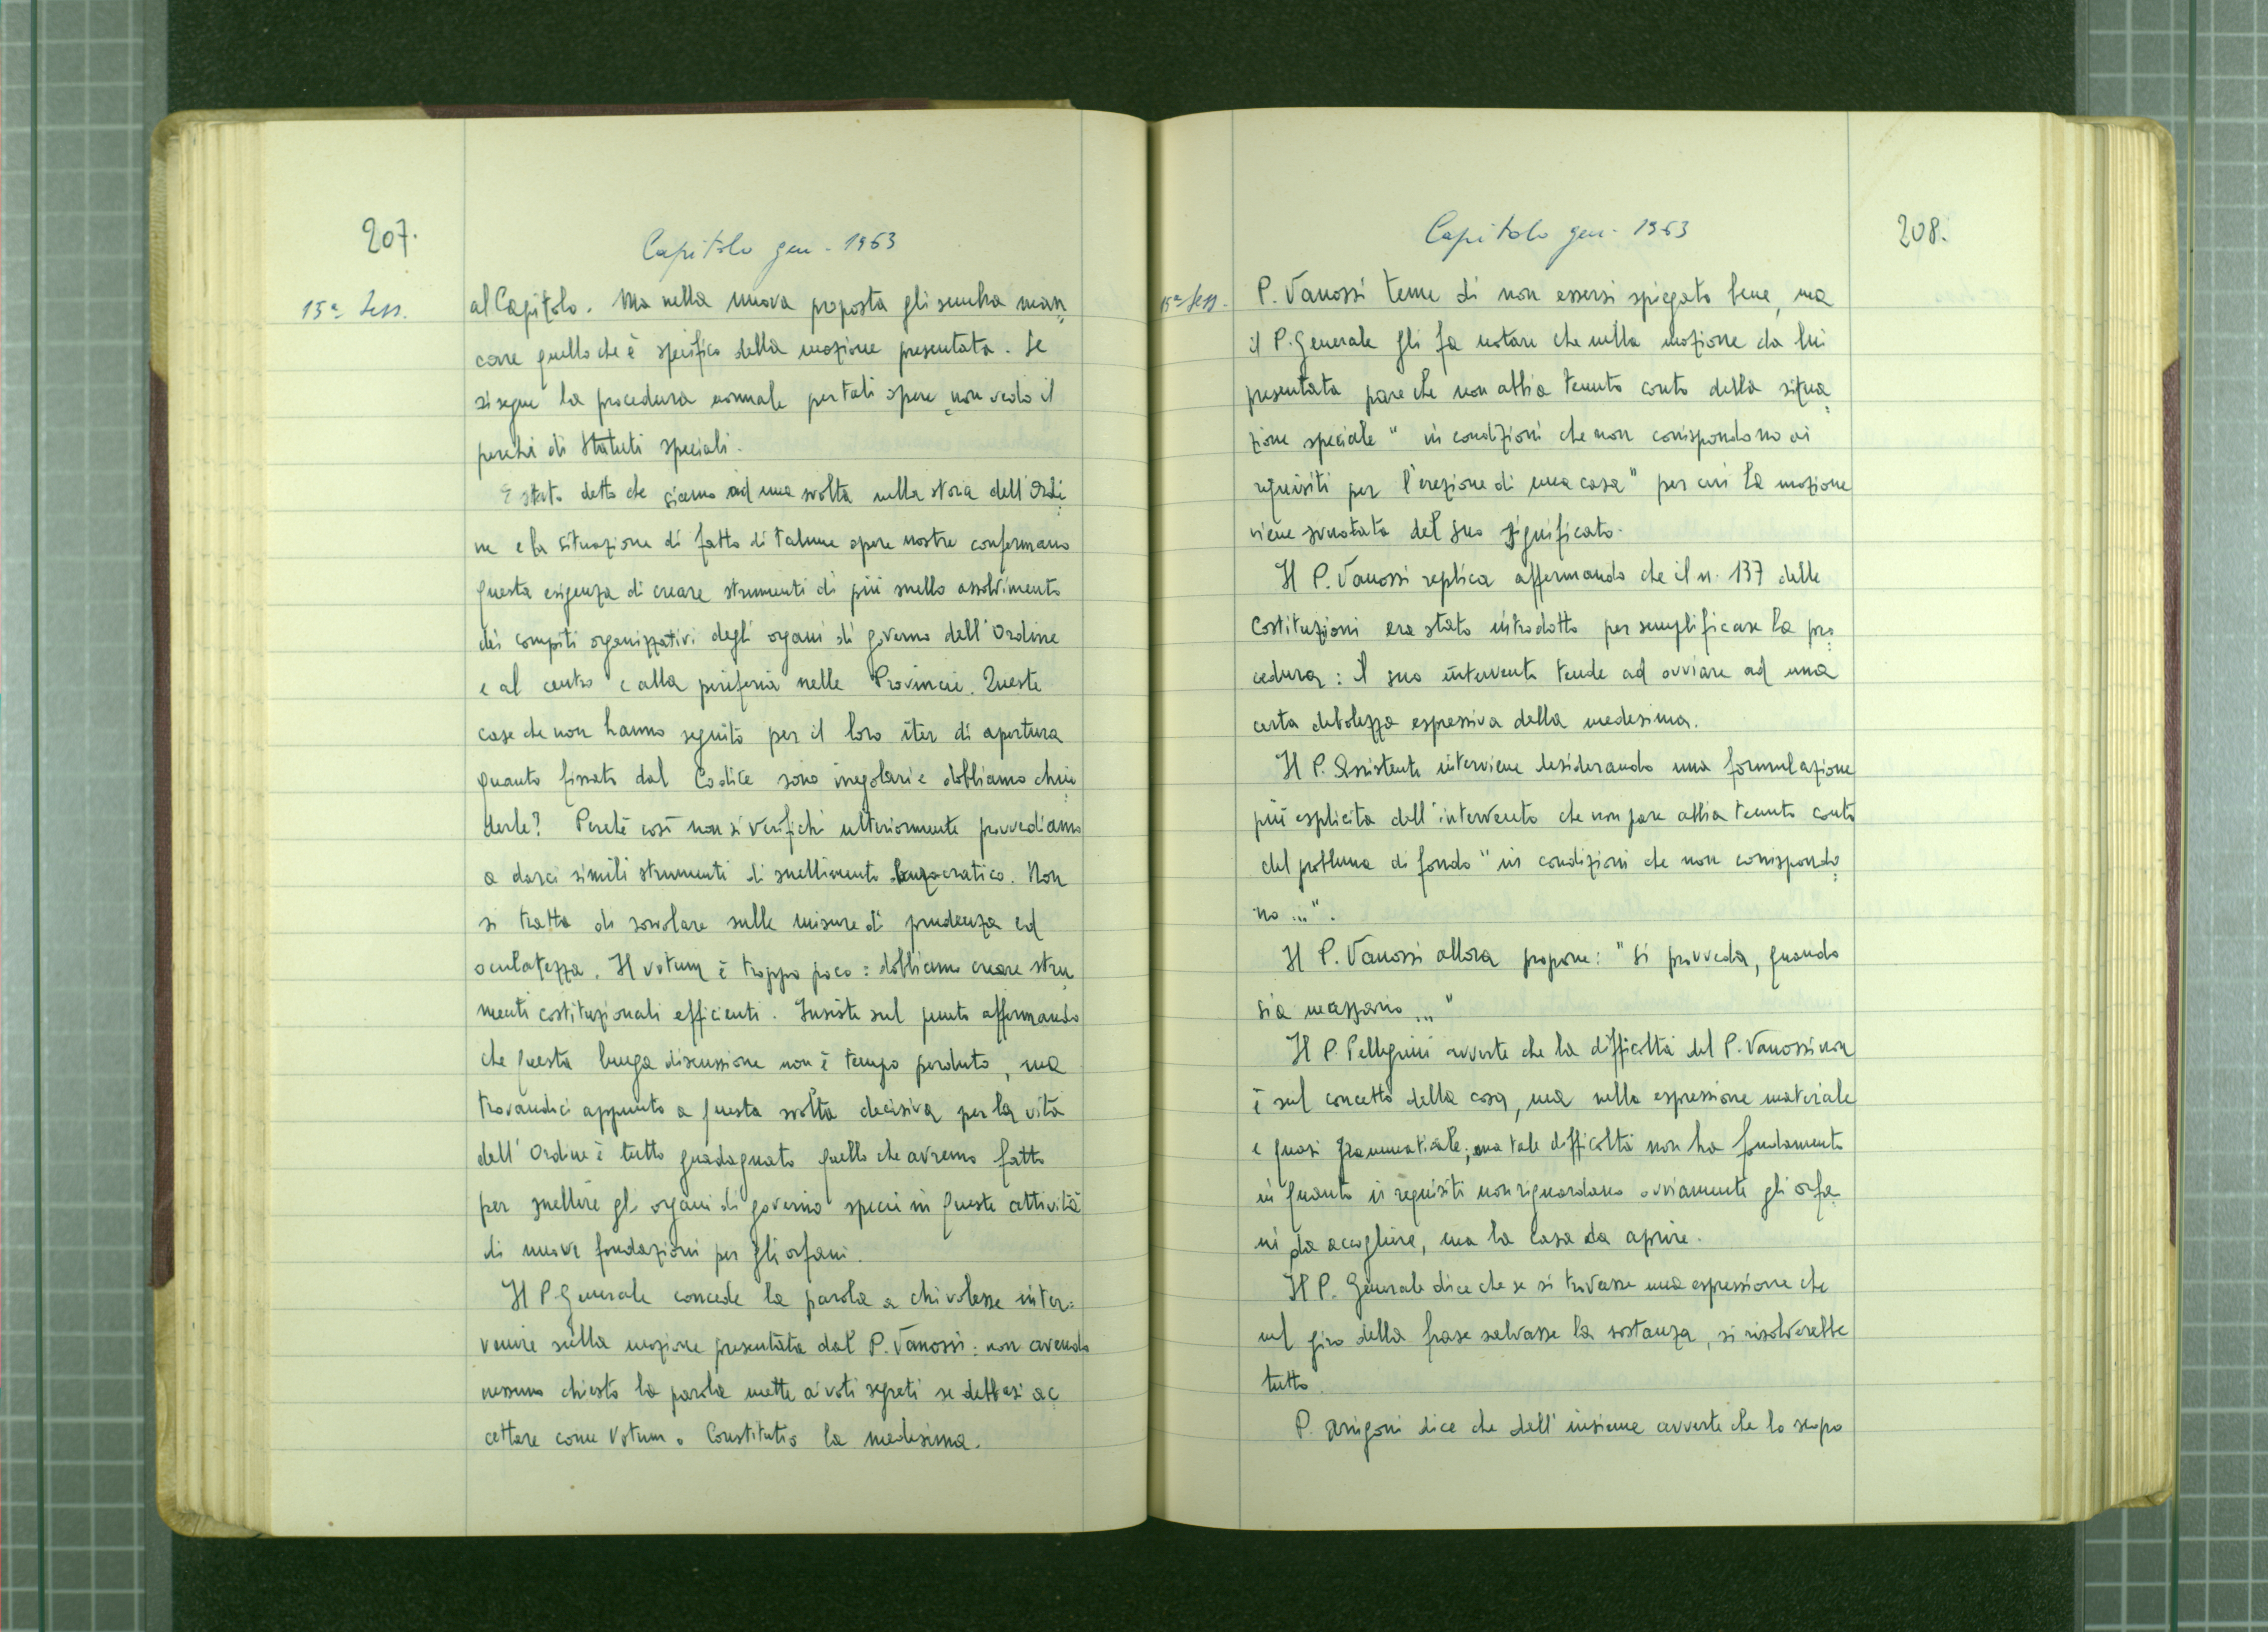 207.
Capitolo gen - 1963
15ª Sess.
al Capitolo. Ma nella nuova proposta gli sembra man
care quello che è specifico della mozione presentata. Se
si segue la procedura normale per tali opere non vedo il
perchè di Statuti speciali.
È stato detto che siamo ad una svolta nella storia dell'Ordi
ne e la situazione di fatto di talune opere nostre confermano
questa esigenza di creare strumenti di più snello assolvimento
dei compiti organizzativi degli organi di governo dell'Ordine
e al centro e alla periferia nelle Provincie. Queste
case che non hanno seguito per il loro iter di apertura
quanto fissato dal Codice sono irregolari e dobbiamo chiu
derle? Perchè così non si verifichi ulteriormente provvediamo
a darci simili strumenti di snellimento burocratico. Non
si tratta di sorvolare sulle misure di prudenza ed
oculatezza. Il votum è troppo poco: dobbiamo creare stru
menti costituzionali efficienti. Insiste sul punto affermando
che questa lunga discussione non è tempo perduto, ma
trovandoci appunto a questa svolta decisiva per la vita
dell'Ordine è tutto guadagnato quello che avremo fatto
per snellire gli organi di governo specie in queste attività
di nuove fondazioni per gli orfani.
Il P. Generale concede la parola a chi volesse inter=
venire sulla mozione presentata dal P. Vanossi: non avendo
nessuno chiesto la parola mette ai voti segreti se debbasi ac
cettare come Votum o Constitutio la medesima.
Capitolo gen - 1963
208.
15ª Sess.
P. Vanossi teme di non essersi spiegato bene, ma
il P. Generale gli fa notare che nella mozione da lui
presentata pare che non abbia tenuto conto della situa
zione speciale "in condizioni che non corrispondono ai
requisiti per l'erezione di una casa" per cui la mozione
viene svuotata del suo significato.
Il P. Vanossi replica affermando che il n. 137 delle
Costituzioni era stato introdotto per semplificare la pro
cedura: il suo intervento tende ad ovviare ad una
certa debolezza espressiva della medesima.
Il P. Assistente interviene desiderando una formulazione
più esplicita dell'intervento che non pare abbia tenuto conto
del problema di fondo "in condizioni che non corrispondo
no ...".
Il P. Vanossi allora propone: "Si provveda, quando
sia necessario ..."
Il P. Pellegrini avverte che la difficoltà del P. Vanossi non
è sul concetto della cosa, ma nella espressione materiale
e quasi grammaticale; ma tale difficoltà non ha fondamento
in quanto i requisiti non riguardano ovviamente gli orfa
ni da accogliere, ma la casa da aprire.
Il P. Generale dice che se si trovasse una espressione che
nel giro della frase salvasse la sostanza, si risolverebbe
tutto.
P. Arrigoni dice che dell'insieme avverte che lo scopo